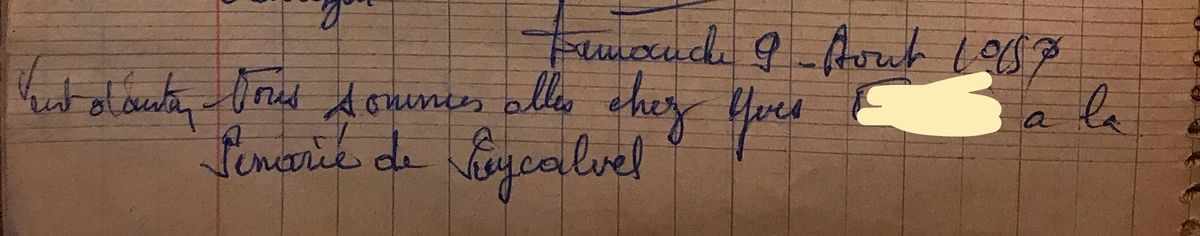 Dimanche 9 - Aout 1987
Vent d'autan - Nous sommes allés chez Yves a la
de Puycalvel